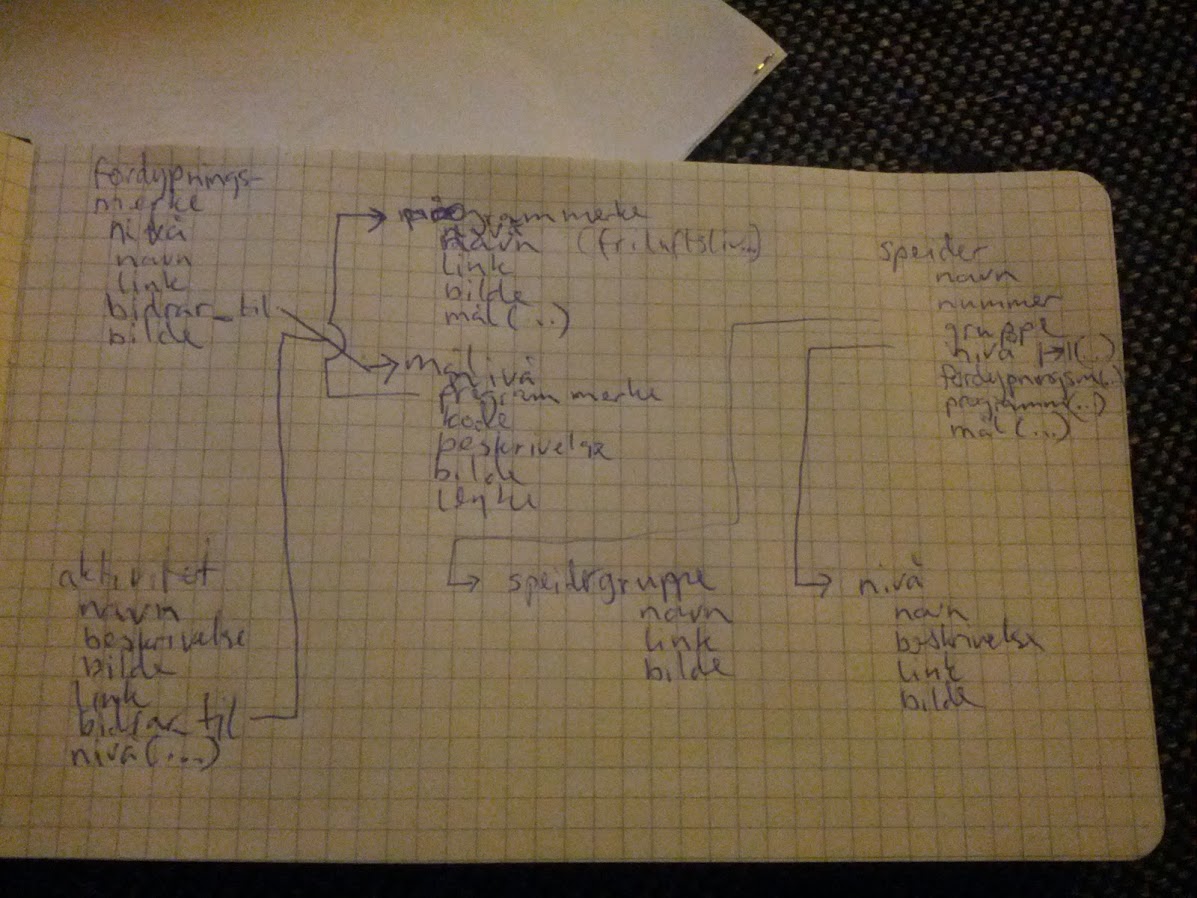 fordypnings-
merke
nivå
navn
link
bidrar_til
bilde
programmerke
navn (friluftsliv...)
link
bilde
mål(...)
mål
nivå
programmerke
kode
beskrivelse
bilde
lenke
speider
navn
nummer
gruppe
nivå (...)
fordypningsm(..)
programm(...)
mål(...)
aktivitet
navn
beskrivelse
bilde
link
bidrar_til
nivå(...)
speidergruppe
navn
link
bilde
nivå
navn
beskrivelse
link
bilde